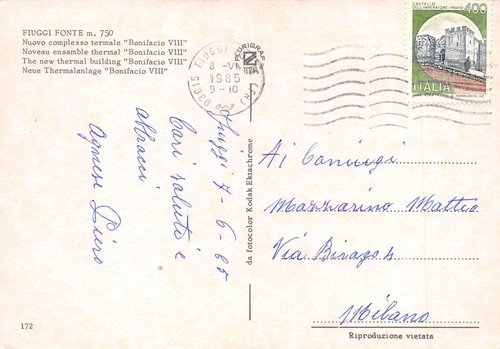 FIUGGI FONTE m. 750
Nuovo complesso termale "Bonifacio VIII"
Noveau ensamble thermal "Bonifacio VIII"
The new thermal building "Bonifacio VIII"
Neue Thermalanlage "Bonifacio VIII"
Fiuggi 7-6-85
Cari saluti e
abbracci
Agnese Piero
172
da fotocolor Kodak Ektachrome
03015 FIUGGI
8-VI
1985
9-10
CASTELLO
DELL'IMPERATORE-PRATO
400
ITALIA
Ai Coniugi
Mazzarino Matteo
Via Birago 4
Milano
Riproduzione vietata